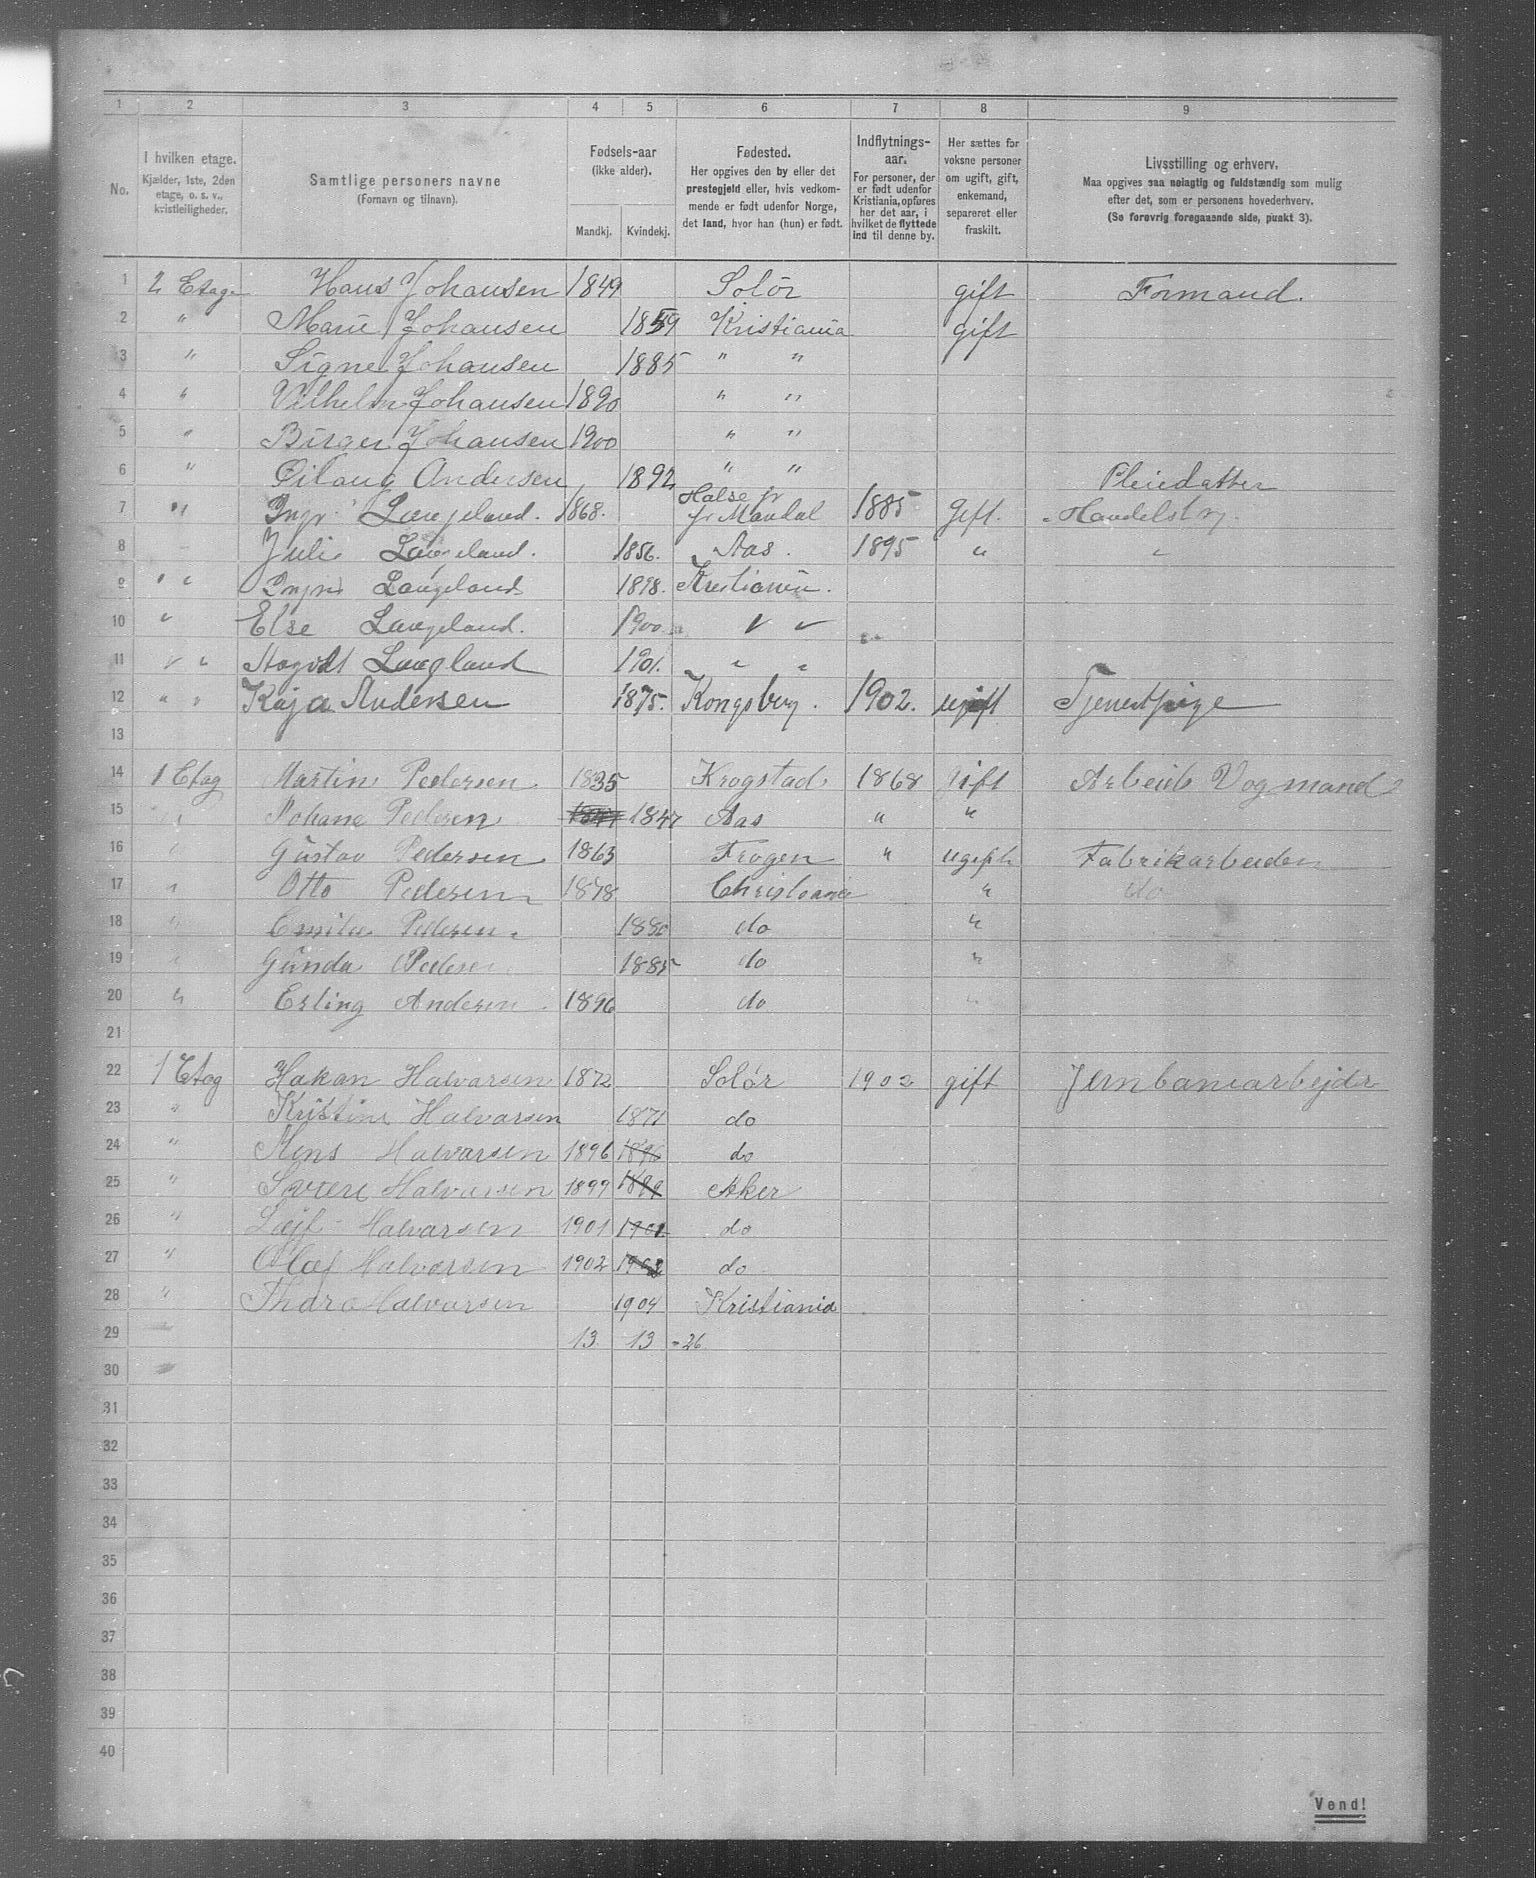 1 2 3 4 5 6 7 8 9
No.
I hvilken etage.
Kjælder, 1ste, 2den
etage, o. s. v.,
kvistleiligheder.
Samtlige personers navne
(Fornavn og tilnavn).
Fødsels-aar
(ikke alder).
Mandkj. Kvindekj.
Fødested.
Her opgives den by eller det
prestegjeld eller, hvis vedkom-
mende er født udenfor Norge,
det land, hvor han (hun) er født.
Indflytnings-
aar.
For personer, der
er født udenfor
Kristiania, opføres
her det aar, i
hvilket de flyttede
ind til denne by.
Her sættes for
voksne personer
om ugift, gift,
enkemand,
separeret eller
fraskilt.
Livsstilling og erhverv.
Maa opgives saa nøiagtig og fuldstændig som mulig
efter det, som er personens hovederhverv.
(Se forøvrig foregaaende side, punkt 3).
1 2 Etage Hans Johansen 1849 Solör gift Formand.
2 " Marie Johansen 1859 Kristiania gift
3 " Signe Johansen 1885 " "
4 " Vilhelm Johansen 1890 " "
5 " Birger Johansen 1900 " "
6 " Andersen 1892 " " Pleiedatter
7 " Langeland. 1868. Halse pr Mandal 1885 Gift. Handelsbg.
8 Julie Langeland. 1856. Aas. 1895 " "
9 " " Langeland 1898. Kristiania.
10 " Else Langeland. 1900 " "
11 " " Langeland 1901. " "
12 " " Kaja Andersen 1875. Kongsberg. 1902. ugift Tjenestpige
13
14 1 Etag Martin Pedersen 1835 Krogstad 1868 Gift Arbeids Vogmand
15 " Johane Pedersen 1847 Aas " "
16 " Gustav Pedersen 1863 Frogen " ugift Fabrikarbeider
17 " Otto Pedersen 1878 Christiania " do
18 " Emilie Pedersen 1880 do "
19 " Gunda Pedersen 1885 do "
20 " Erling Andersen 1896 do "
21
22 1 Etag Hakan Halvarsen 1872 Solør 1902 gift Jernbanearbejder
23 " Kristine Halvarsen 1871 do
24 " Mons Halvarsen 1896 1896 do
25 " Sverre Halvarsen 1899 1899 Aker
26 " Lejf Halvarsen 1901 1901 do
27 " Olaf Halvorsen 1902 1902 do
28 " Thora Halvarsen 1904 Kristiania
29 13 13 = 26
30
31
32
33
34
35
36
37
38
39
40
Vend!